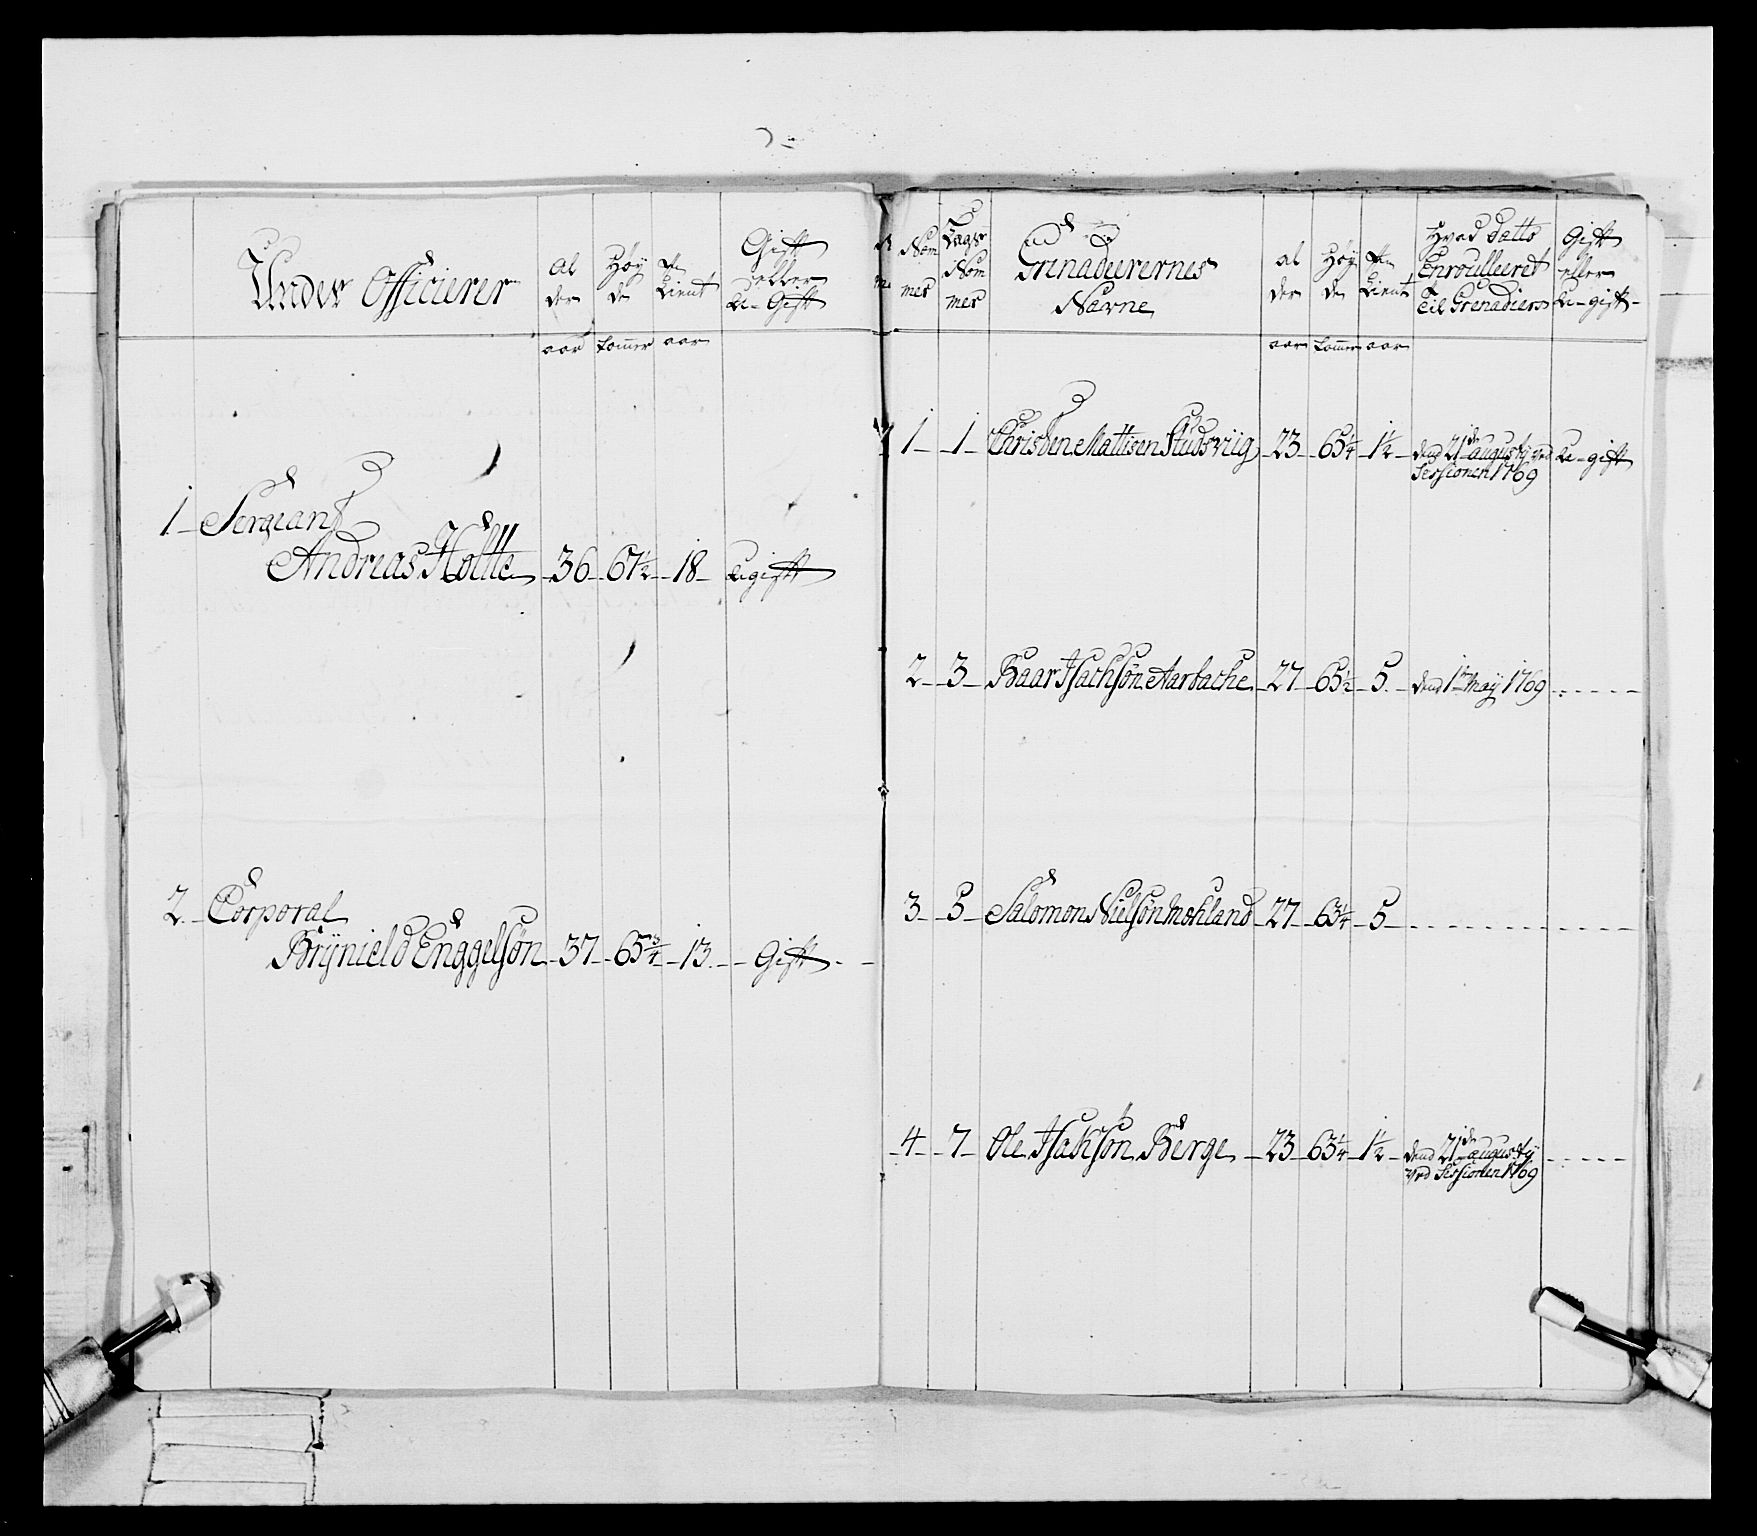 Under Officierer
Al
der
Høy
de
Tie
Tient
Gift
eller
U-Gift
aar tommer aar
1 Sergiant
Andreas Holtte 36 67½ 18 Ugift
2. Corporal
Brÿnield Enggelsøn 37 65¾ 13 Gift
Nom
mer
Lægs
Nom
mer
Grenadeerernes
Navne
al
der
Høy
de
Tient
Hvad datto
Enroulleeret
til Grenadiers
Gift
eller
U-gift
aar tommer aar
1 1 Christen Mattisen Studsviig 23 65¼ 1½ dend 21de augustÿ ved U-gift
Sessionen 1769
2 3 Baar Isachsøn Aarbache 27 65½ 5 dend 1te Maÿ 1769
3 5 Salomon Nielsøn Mohland 27 63¼ 5
4 7 Ole Isaksøn Berge 23 63¼ 1½ dend 21de augustÿ
ved Sessionen 1769